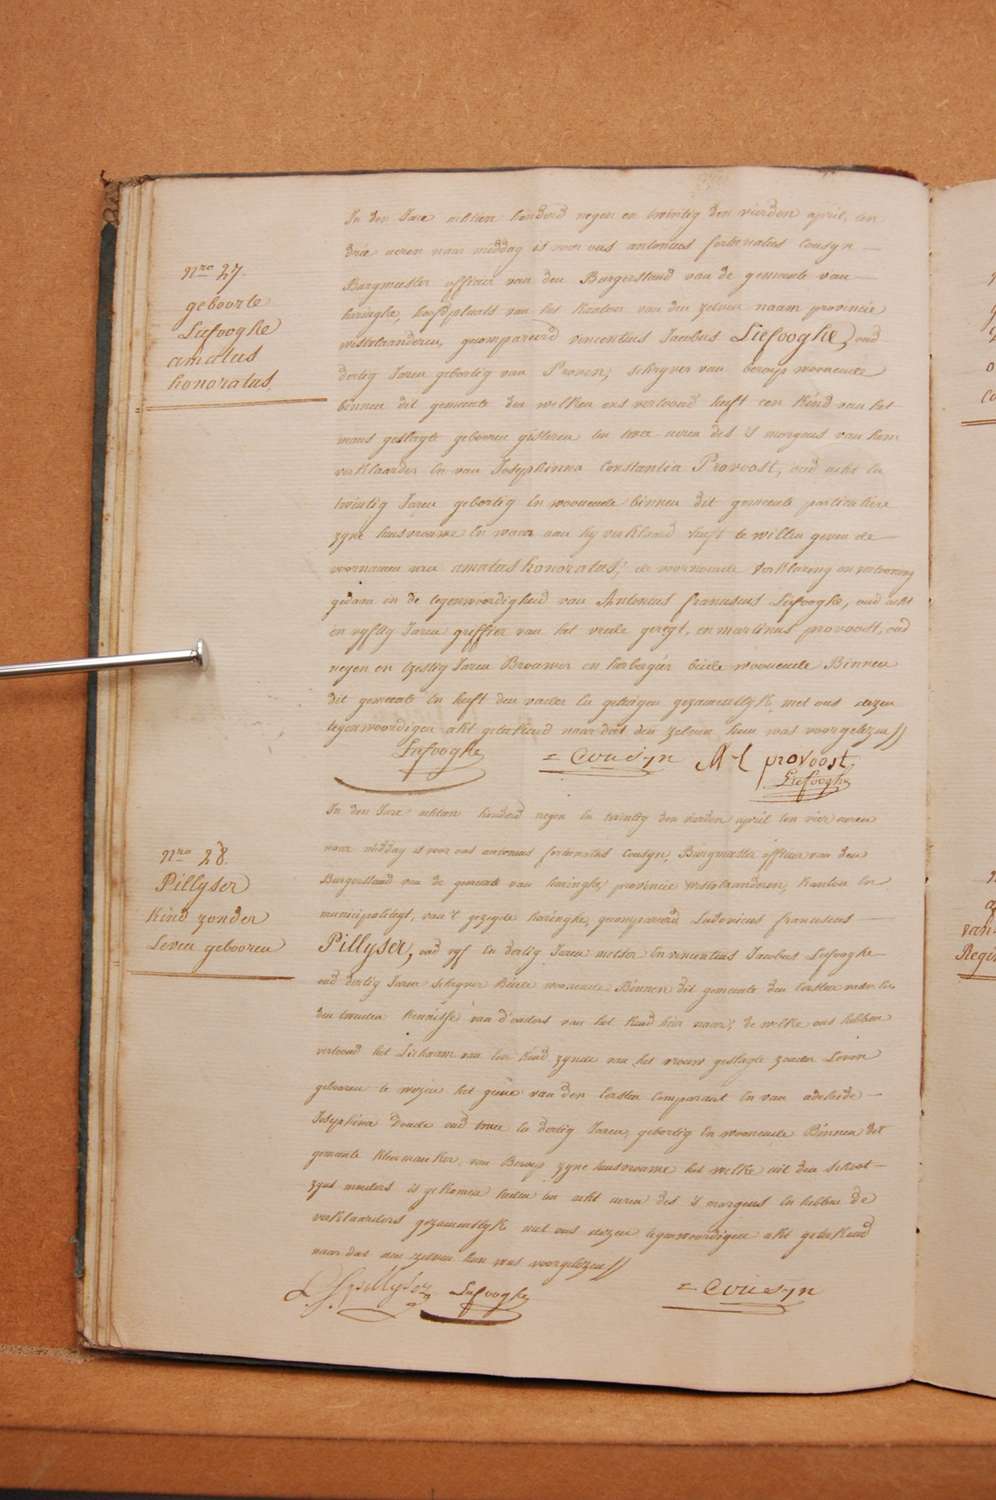 Nro 27.
geboorte
Liefooghe
amatus
honoratus.
In den Jare achtien honderd negen en twintig den vierden april, ten
drie uren naer middag is voor ons antonius fortunatus Cousyn
Burgmeester officier van den Burgerstand van de gemeente van
haringhe, hoofdplaats van het kanton van den zelven naam provincie
westvlaanderen, gecompareerd vincentius Jacobus Liefooghe, oud
dertig Jaren gebortig van Proven, schryver van beroep woonende
binnen dit gemeente den welken ons vertoond heeft een kind van het
mans geslagte geboren gisteren ten twee uren des 's morgens van hem
verklaarder en van Josephinna Constantia Provoost, oud acht en
twintig Jaren gebortig en woonende binnen dit gemeente particuliere
zyne huisvrouwe en waar aan hy verklaard heeft te willen geven de
voornamen van amatus honoratus; de voornoemde verklaring en vertooning
gedaan in de tegenwoordigheid van Antonius franciscus Liefooghe, oud acht
en vyftig Jaren griffier van het vrede geregt, en martinus provoost, oud
negen en tzestig Jaren Brouwer en herbergier beide woonende Binnen
dit gemeente en heeft den vader en getuigen gezamentlyk met ons dezen
tegenwoordigen akt geteekend naar dat den zelven hun was voorgelezen
Liefooghe = Cousyn M-l provoost.
Liefooghe
Nro 28.
Pillyser
kind zonder
Leven gebooren
In den Jare achtien honderd negen en twintig den vierden april ten vier uren
naer middag is voor ons antonius fortunatus Cousyn, Burgmeester officier van den
Burgerstand van de gemeente van haringhe, provincie westvlaanderen, kanton en
municipaliteyt, van 't gezegde haringhe, gecompareerd Ludovicus franciscus
Pillyser, oud vyf en dertig Jaren metser en vincentius Jacobus Liefooghe
oud dertig Jaren schryver Beide woonende Binnen dit gemeente den eersten vader en
den tweeden kennisse van d'ouders van het kind hier naar; de welke ons hebben
vertoond het Lichaam van een kind zynde van het vrouw geslagte zonder Leven
gebooren te wezen het geene van den eersten Comparant en van adelaide
Josephina Donche oud twee en dertig Jaren, gebortig en woonende Binnen dit
gemeente van Beroep zyne huisvrouwe het welke uit den schoot
zyns moeders is gekomen heden ten acht uren des 's morgens en hebben de
verklaarders gezamentlyk met ons dezen tegenwoordigen akt geteekend
naar dat den zelven hun was voorgelezen
Pillyser Liefooghe = Cousyn